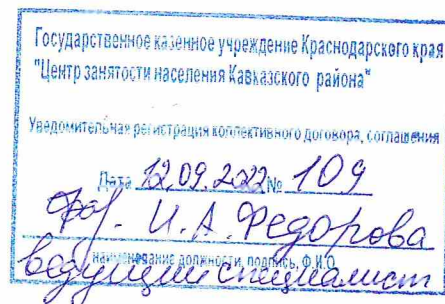 Государственное казенное учреждение Краснодарского края
"Центр занятости населения Кавказского района"
Уведомительная регистрация коллективного договора, соглашения
Дата 12.09.2022 № 109
И.А. Федорова
наименование должности, подпись, Ф.И.О.
ведущий специалист